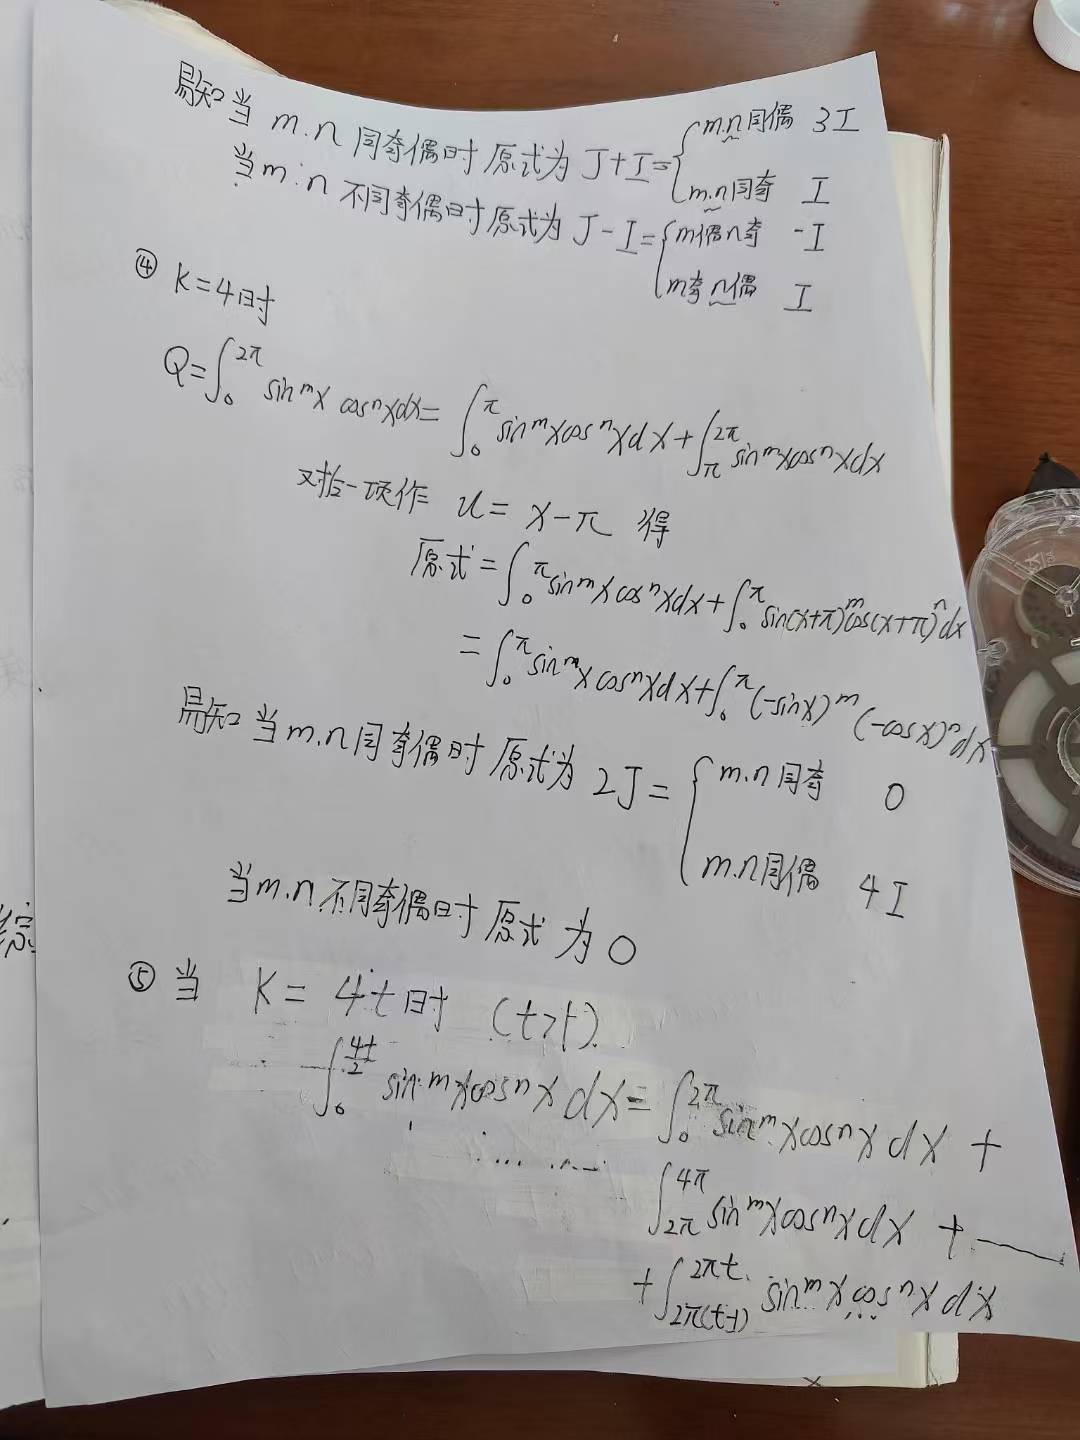 易知当 m.n 同奇偶时 原式为 J+I= { m.n同偶 3I
m.n同奇 I
当m.n 不同奇偶时 原式为 J-I= { m偶n奇 -I
m奇n偶 I
④ K=4时
Q=∫₀^{2π} sin^m x cos^n x dx= ∫₀^π sin^m x cos^n x dx + ∫_π^{2π} sin^m x cos^n x dx
作 u= x-π 得
原式=∫₀^π sin^m x cos^n x dx + ∫₀^π sin(x+π)^m cos(x+π)^n dx
=∫₀^π sin^m x cos^n x dx + ∫₀^π (-sin x)^m (-cos x)^n dx
易知 当m.n同奇偶时 原式为 2J = { m.n同奇 0
m.n同偶 4I
当m.n不同奇偶时 原式 为 0
⑤ 当 K= 4t时 (t>1)
∫₀^{4t/2} sin^m x cos^n x dx= ∫₀^{2π} sin^m x cos^n x dx +
∫_{2π}^{4π} sin^m x cos^n x dx + ——
+ ∫_{2π(t-1)}^{2πt} sin^m x cos^n x dx
综